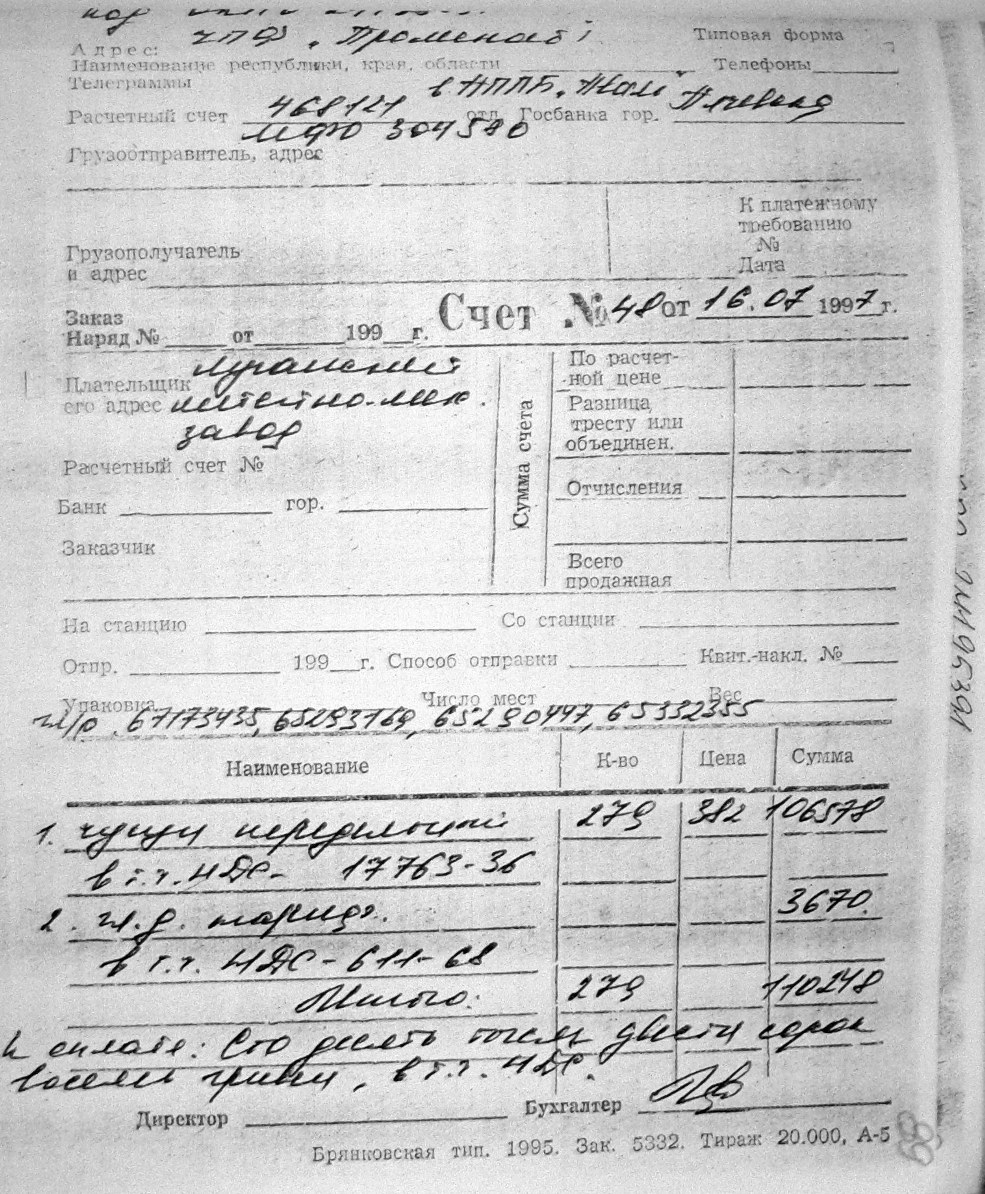 код
ЧПФ "Променад"
Адрес: Типовая форма
Наименование республики, края, области Телефоны
Телеграммы
в АППБ
Расчетный счет 468121 отд. Госбанка гор.
МФО 304580
Грузоотправитель, адрес
К платежному
требованию
№
Дата
Грузополучатель
и адрес
Счет № 48 от 16.07 1997 г.
Заказ
Наряд № от 199 г.
Плательщик Луганский
его адрес литейно-мех.
завод
Расчетный счет №
Банк гор.
Заказчик
Сумма счета
По расчет-
ной цене
Разница
тресту или
объединен.
Отчисления
Всего
продажная
На станцию Со станции
Отпр. 199 г. Способ отправки Квит.-накл. №
Упаковка Число мест Вес
67173435, 65293169, 65290447, 65332355
Наименование К-во Цена Сумма
1. чугун передельный 279 382 106578
в т.ч. НДС- 17763-36
2. ж.д. тариф. 3670
в т.ч. НДС-611-68
Итого: 279 110248
К оплате: Сто десять тысяч двести сорок
восемь гривен, в т.ч. НДС.
Директор Бухгалтер
Брянковская тип. 1995. Зак. 5332. Тираж 20.000, А-5